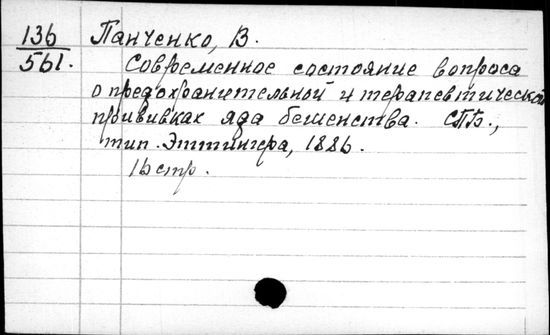 136 Панченко, В.
561. Современное состояние вопроса
о предохранительной и терапевтической
прививках яда бешенства. СПБ.,
тип. Эттингера, 1886.
16 стр.